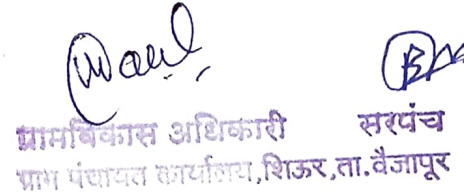 ग्रामविकास अधिकारी सरपंच
ग्राम पंचायत कार्यालय,शिऊर,ता.वैजापूर